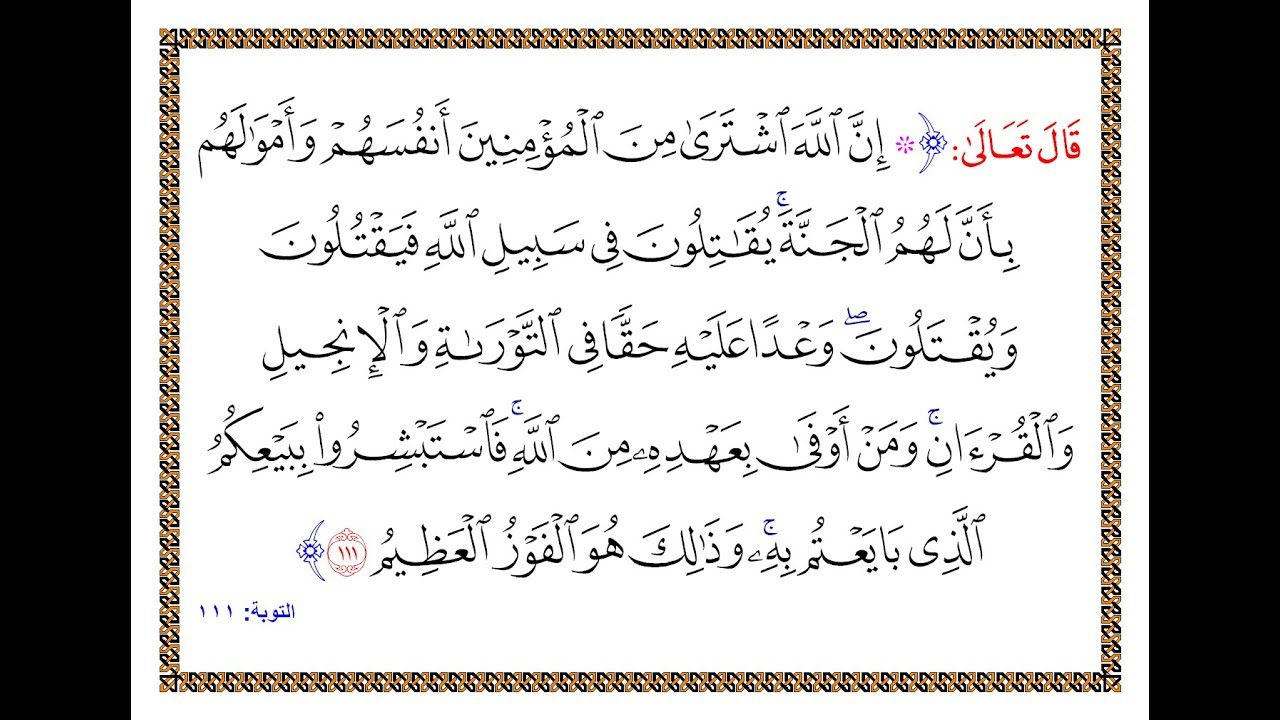 قَالَ تَعَالَىٰ: ﴿ ۞ إِنَّ ٱللَّهَ ٱشۡتَرَىٰ مِنَ ٱلۡمُؤۡمِنِينَ أَنفُسَهُمۡ وَأَمۡوَٰلَهُم
بِأَنَّ لَهُمُ ٱلۡجَنَّةَۚ يُقَٰتِلُونَ فِي سَبِيلِ ٱللَّهِ فَيَقۡتُلُونَ
وَيُقۡتَلُونَۖ وَعۡدًا عَلَيۡهِ حَقّٗا فِي ٱلتَّوۡرَىٰةِ وَٱلۡإِنجِيلِ
وَٱلۡقُرۡءَانِۚ وَمَنۡ أَوۡفَىٰ بِعَهۡدِهِۦ مِنَ ٱللَّهِۚ فَٱسۡتَبۡشِرُواْ بِبَيۡعِكُمُ
ٱلَّذِي بَايَعۡتُم بِهِۦۚ وَذَٰلِكَ هُوَ ٱلۡفَوۡزُ ٱلۡعَظِيمُ ١١١ ﴾
التوبة: ١١١